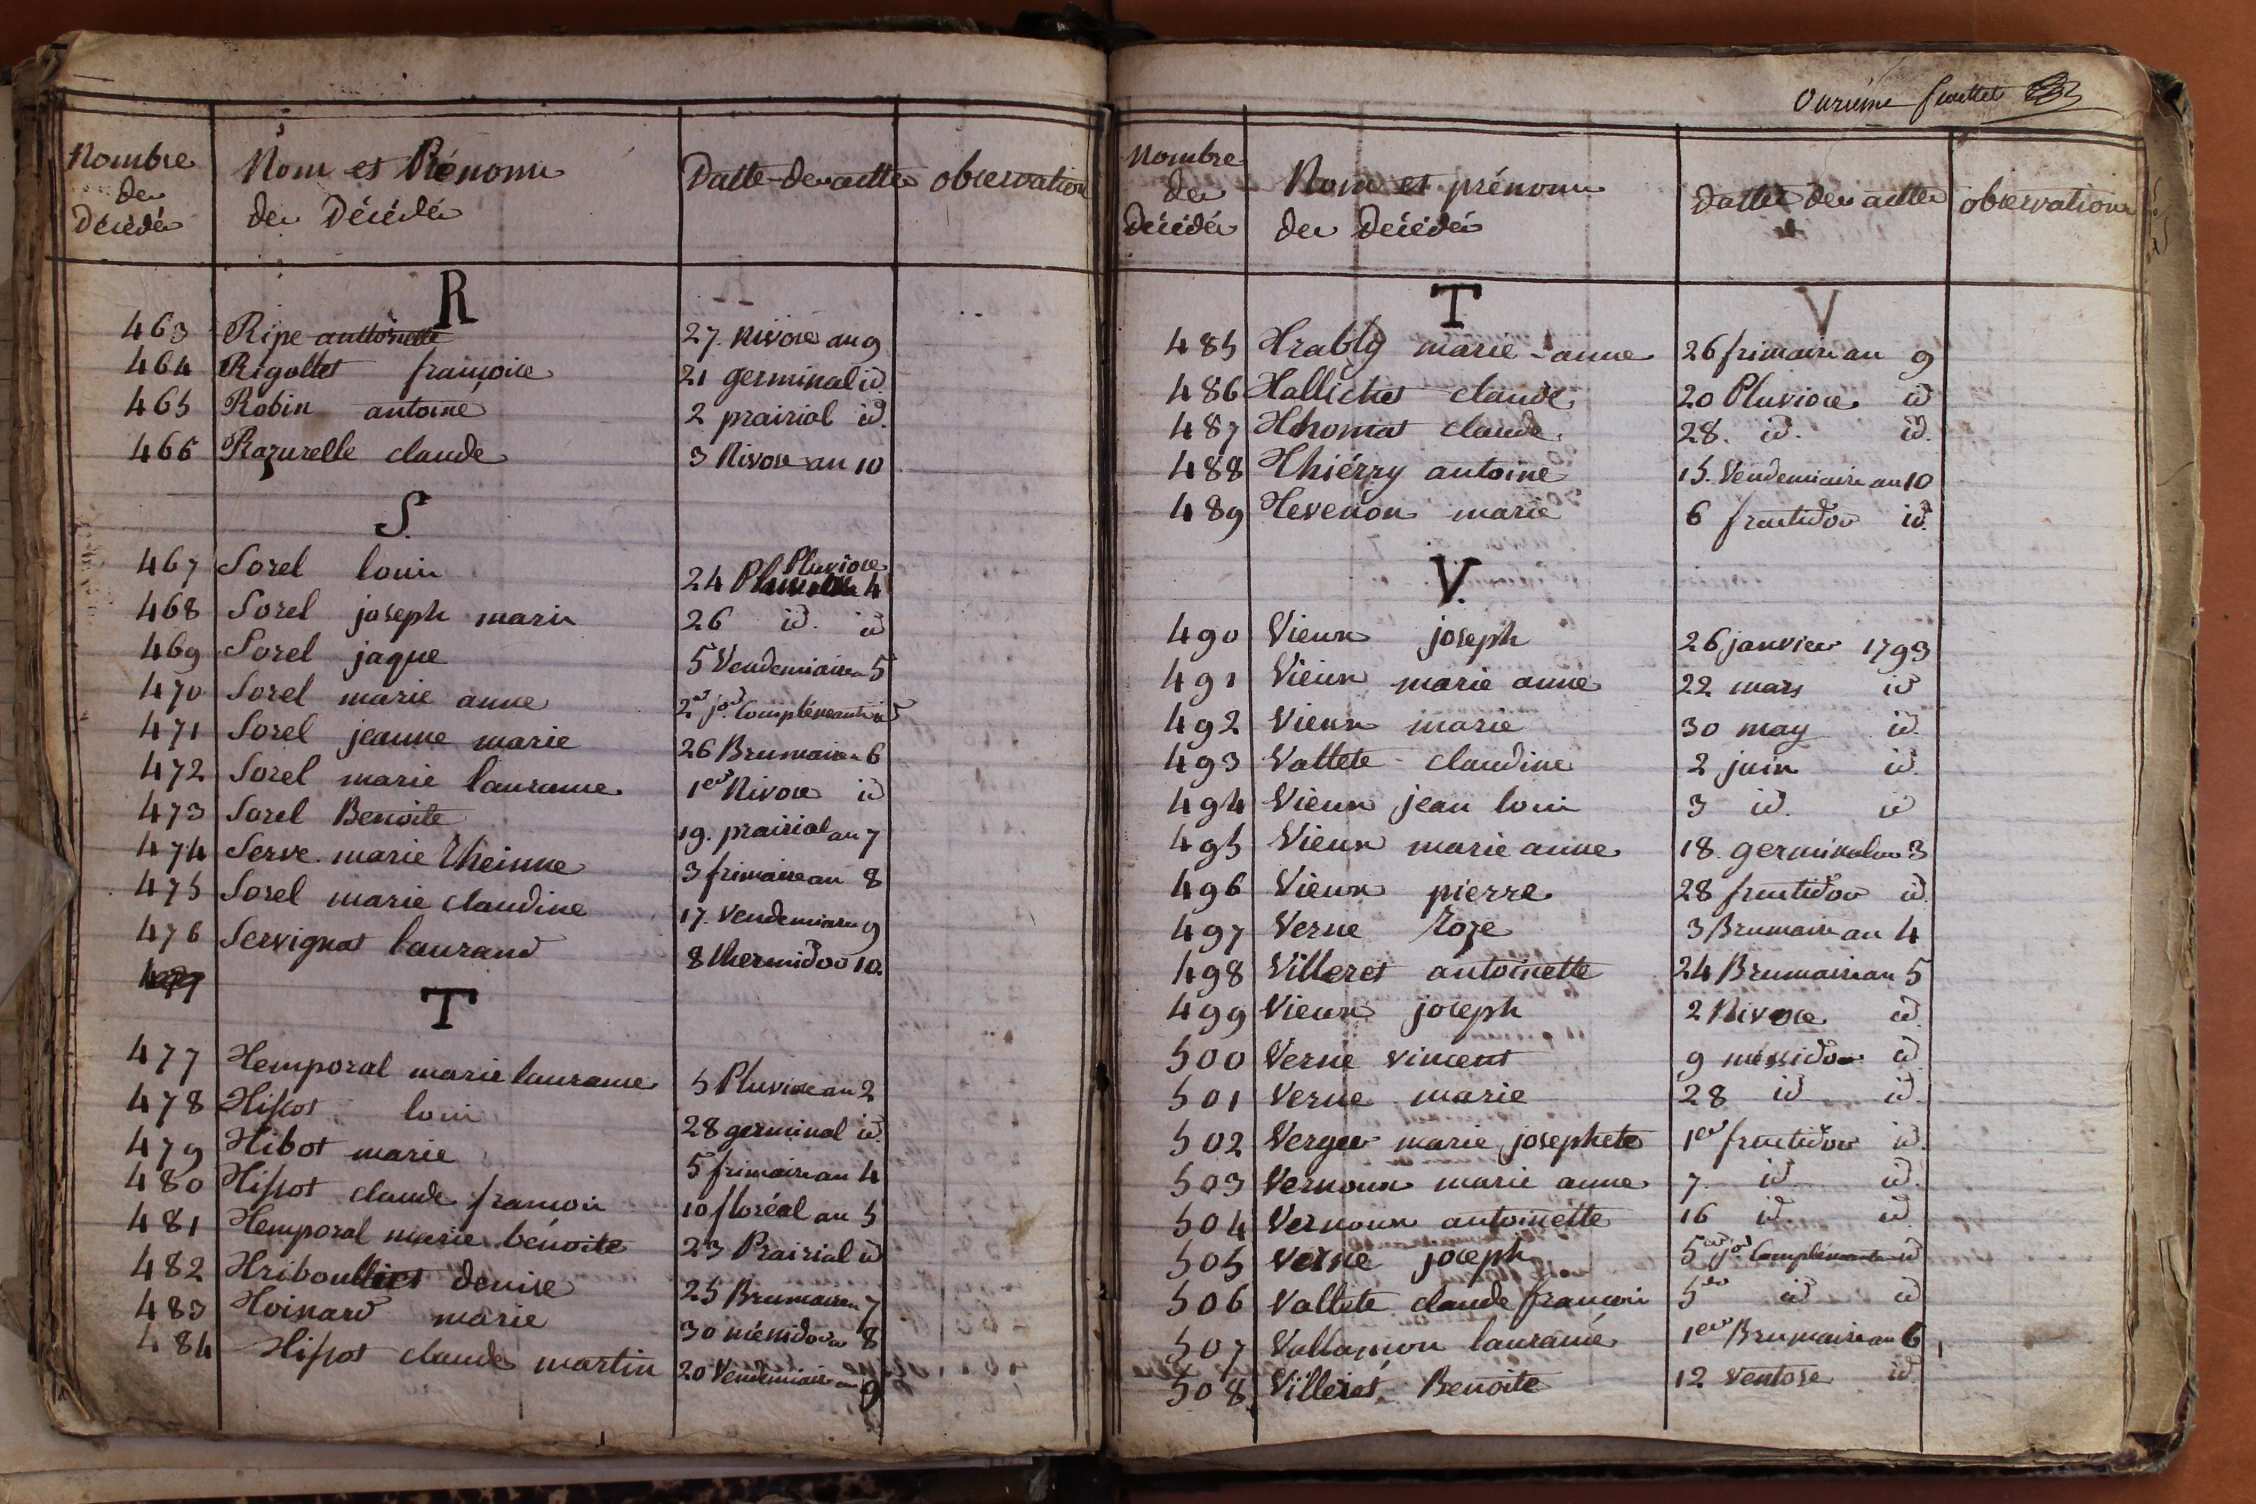 Nombre
des
Décédés
Nom et Prénoms
des Décédés
Datte des acttes
observations
R
463 Ripe anttoinette 27. Nivose an 9
464 Rigollet françoise 21 germinal id
465 Robin antoine 2 prairial id.
466 Razurelle claude 3 Nivose an 10
S.
467 Sorel louis 24 Pluviose 4
468 Sorel joseph marie 26 id. id
469 Sorel jaque 5 Vendemiaire 5
470 Sorel marie anne 2er jor Complémentaire 5
471 Sorel jeanne marie 26 Brumaire 6
472 Sorel marie lauranne 1er Nivose id
473 Sorel Benoite 19. prairial an 7
474 Serve marie Etheinne 3 frimaire an 8
475 Sorel marie claudine 17. Vendemiaire 9
476 Servignat laurand 8 thermidor 10.
477
T
477 Temporal marie lauranne 5 Pluviose an 2
478 Tissot louis 28 germinal id.
479 Tibot marie 5 frimaire an 4
480 Tissot claude francois 10 floréal an 5
481 Temporal marie bénoite 23 Prairial id
482 Triboulliet denise 25 Brumaire 7
483 Toinard marie 30 méssidor an 8
484 Tissot claude martin 20 Vendemiaire an 9
Onzième feuillet
Nombre
des
Décédés
Nom et prénoms
des Décédés
Datte des acttes
observations
T V
485 Trably marie-anne 26 frimaire an 9
486 Tallichet claude 20 Pluviose id
487 Thomas claude 28. id. id.
488 Thiérry antoine 15. Vendemiaire an 10
489 Tevenon marie 6 fructidor id.
V.
490 Vieux joseph 26 janvier 1793
491 Vieux marie anne 22 mars id
492 Vieux marie 30 may id.
493 Vallete claudine 2 juin id.
494 Vieux jean louis 3 id. id
495 Vieux marie anne 18 germinal an 3
496 Vieux pierre 28 fructidor id.
497 Verne Roze 3 Brumaire an 4
498 Villeret antoinette 24 Brumaire an 5
499 Vieux joseph 2 Nivose id.
500 Verne vincent 9 méssidor id
501 Verne marie 28 id id.
502 Verger marie josephete 1er fructidor id.
503 Vernoux marie anne 7. id id.
504 Vernoux antoinette 16 id id
505 Verne joseph 5er jor Complémentaire id
506 Vallete claude francois 5er id id
507 Vallansion lauranné 1er Brumaire an 6
508. Villeret Benoite 12 Ventose id.